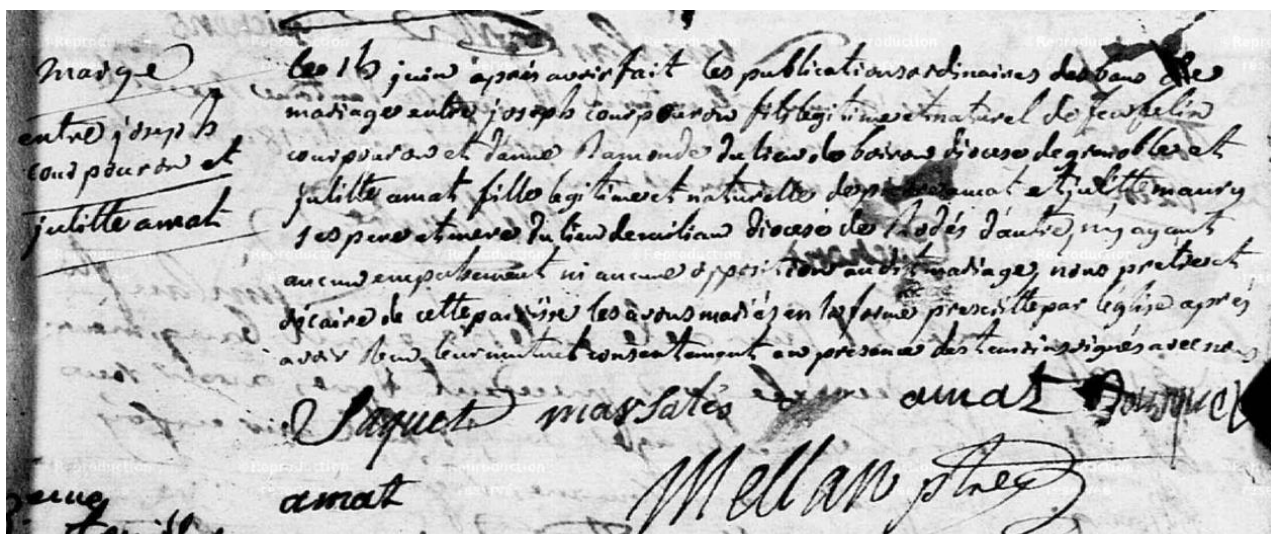 mariage
entre joseph
courpouron et
julitte amat
les 1h juin aprés avoir fait les publications ordinaires des bans de
mariage entre joseph courpouron fils legitime et naturel de feu felin
courpouron et d'anne Ramonde du lieu de boiron diocese de grenoble et
julitte amat fille legitime et naturelle de pierre amat et julitte maury
ses pere et mere du lieu de milian diocése de Rodés d'autre, n'y ayant
aucun empechement ni aucune opposition audit mariage, nous pretre et
vicaire de cette paroisse les avons mariés en la forme prescritte par l'église aprés
avoir leur mutuel consentement en présence des temoins signés avec nous
Paquet marsatés amat
amat Mellan ptre